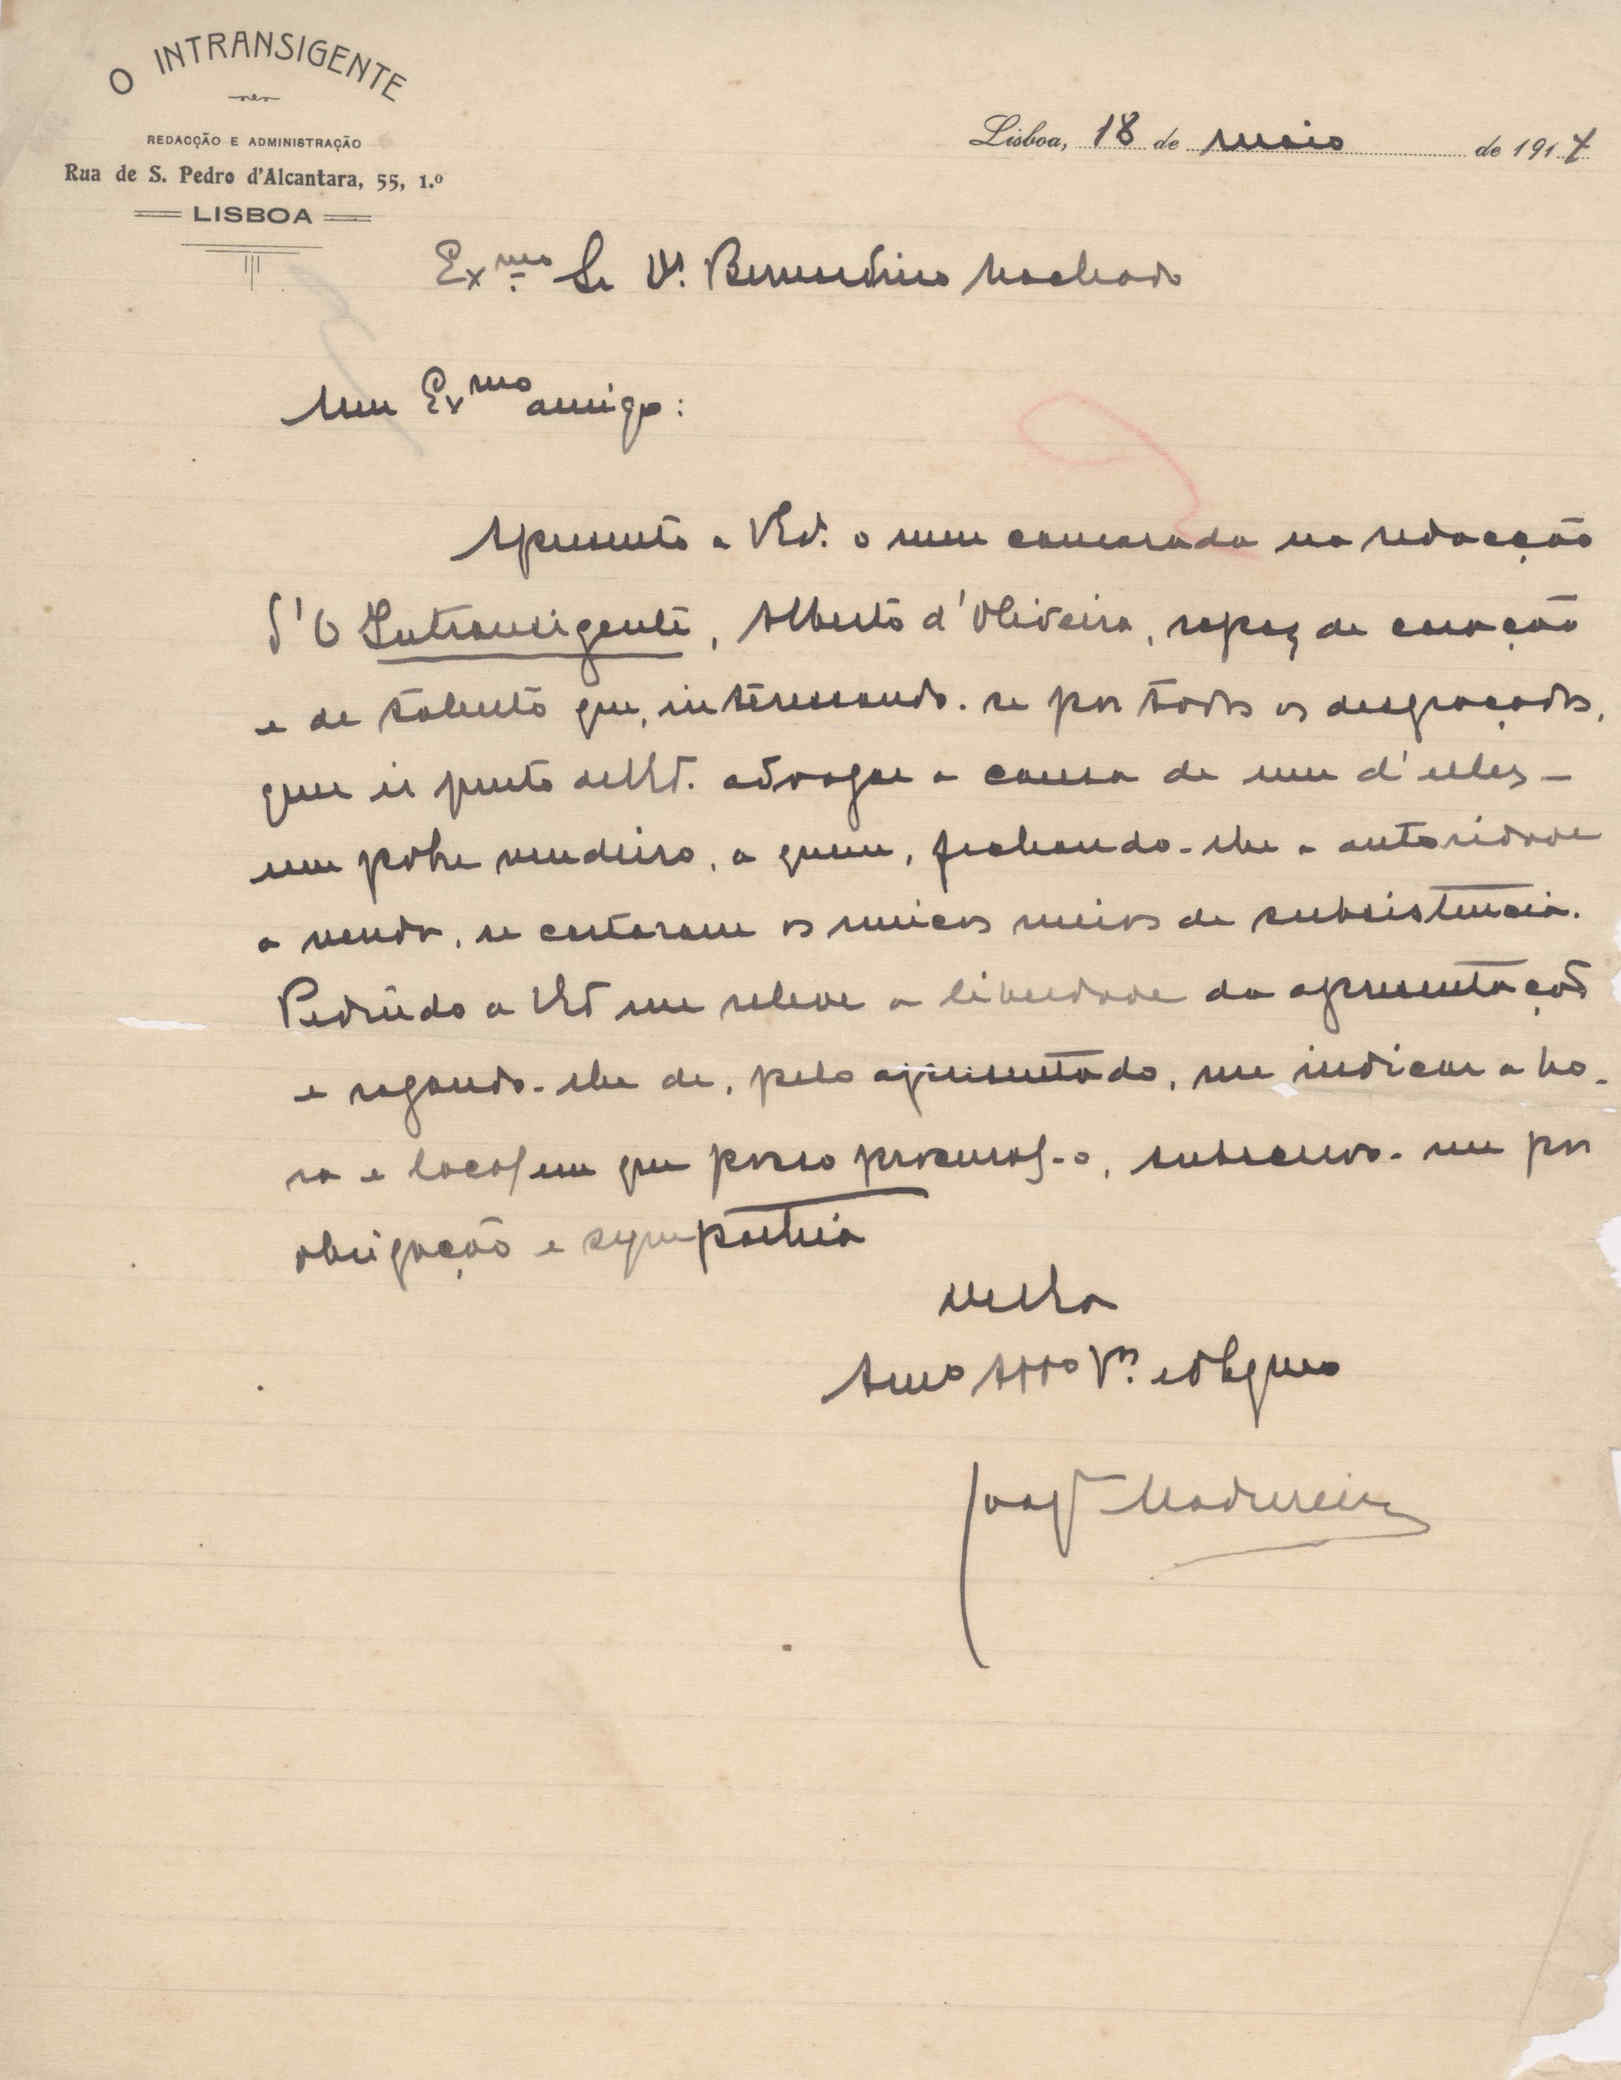 O INTRANSIGENTE
REDACÇÃO E ADMINISTRAÇÃO
Rua de S. Pedro d'Alcantara, 55, 1.º
LISBOA
Lisboa, 18 de maio de 1914
Exmo Sr Dr. Bernardino Machado
Meu Exmo amigo:
Apresento a V Exª. o meu camarada na redacção
d'O Intransigente, Alberto d'Oliveira, rapaz de coração
e de talento que, interessando-se por todos os desgraçados,
quer ir junto de V Exª. advogar a causa de um d'elles –
um pobre vendeiro, a quem, fechando-lhe a autoridade
a venda, se cortaram os unicos meios de subsistencia.
Pedindo a V Exª me releve a liberdade da apresentação
e rogando-lhe de, pelo apresentado, me indicar a ho-
ra e local em que posso procural-o, subscrevo-me por
obrigação e sympathia
Amo Atto Vor. e Obgmo
Joaqm Madureira